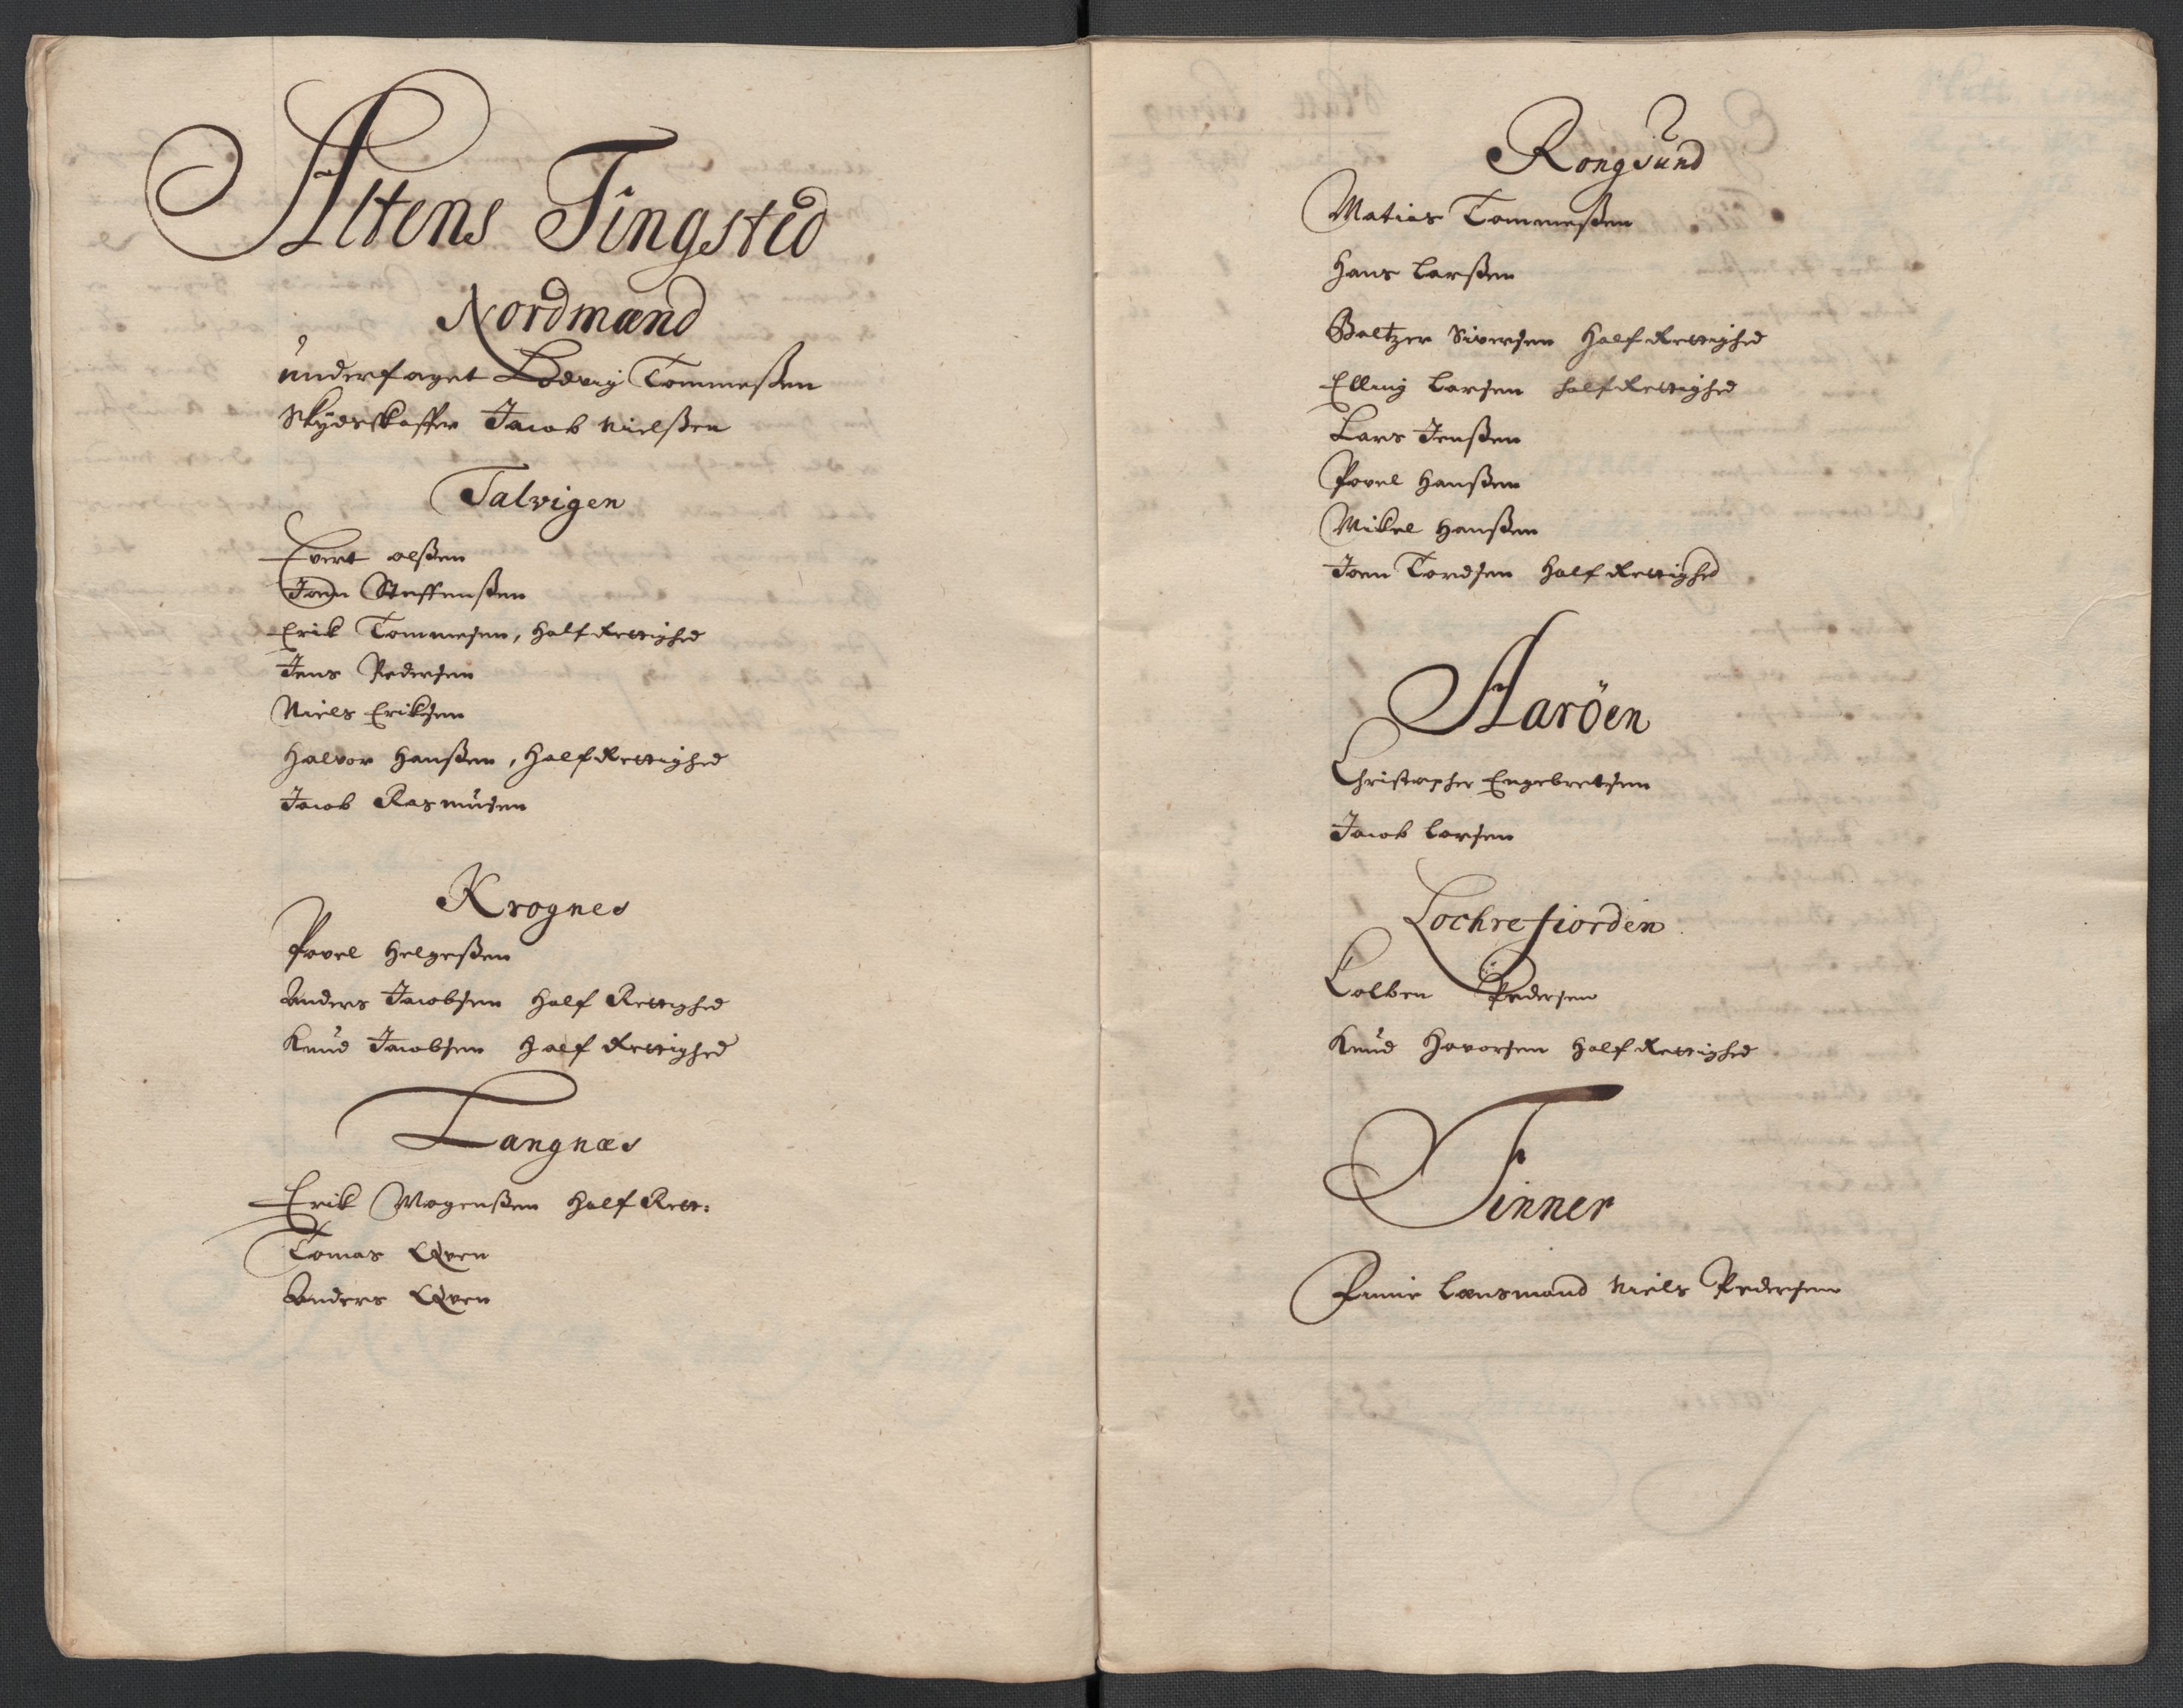 Altens Tingsted
Nordmænd
underfaget Lodvig Tommeßen
Skydsskaffer Jacob Nielßen
Talvigen
Evert olßen
Joen Steffenßen
Erik Tommesen, Half Rettighed
Jens Pedersen
Niels Eriksen
Halvor Hanßen, Half Rettighed
Jacob Rasmusen
Krognes
Povel Helgeßen
Anders Jacobsen Half Rettighed
Knud Jacobsen Half Rettighed
Langnæs
Erik Mogenßen Half Rett:
Tomas Qven
Anders Qven
Rongsund
Matias Tommeßen
Hans Larßen
Baltzer Siversen Half Rettighed
Elling Larsen half Rettighed
Lars Jenßen
Povel Hanßen
Mikel Hanßen
Joen Tordsen Half Rettighed
Aaröen
Christopher Engebretsen
Jacob Larsen
Lochrefiorden
Kolben Pedersen
Knud Havorsen Half Rettighed
Finner
Finne Lænsmand Niels Pedersen